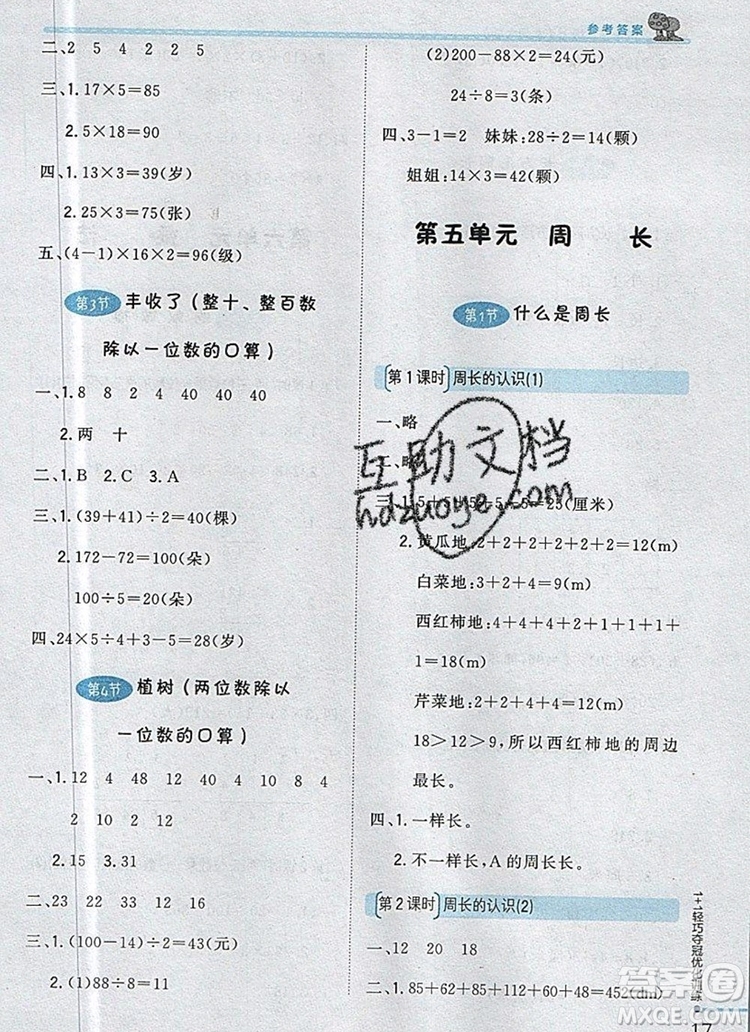 参考答案
二、2 5 4 2 2 5
三、1.17×5=85
2.5×18=90
四、1.13×3=39(岁)
2.25×3=75(张)
五、(4-1)×16×2=96(级)
第3节 丰收了(整十、整百数
除以一位数的口算)
一、1.8 8 2 4 40 40 40
2.两 十
二、1.B 2.C 3.A
三、1.(39+41)÷2=40(棵)
2.172-72=100(朵)
100÷5=20(朵)
四、24×5÷4+3-5=28(岁)
第4节 植树(两位数除以
一位数的口算)
一、1.12 4 48 12 40 4 10 8 4
2 10 2 12
2.21 15 3.31
二、23 13 22 15
三、1.(100-44)÷2=28
2.(1)88÷8=11
(2)200-88×2=24(元)
24÷8=3(条)
四、3-1=2 妹妹:28÷2=14(颗)
姐姐:14×3=42(颗)
第五单元 周 长
第1节 什么是周长
第1课时 周长的认识(1)
一、略
略
5=25(厘米)
2.黄瓜地:2+2+2+2+2+2=12(m)
白菜地:3+2+4=9(m)
西红柿地:4+4+2+1+1+1+
4+1=18(m)
芹菜地:2+2+4+4=12(m)
18>12>9,所以西红柿地的周边
最长。
四、1.一样长。
2.不一样长,A的周长长。
第2课时 周长的认识(2)
一、12 20 18
二、85+62+85+112+60+48=452(dm)
互助文档
hdzuoye.com
1+1轻巧夺冠优化训练
答案圈
MXQE.COM
17